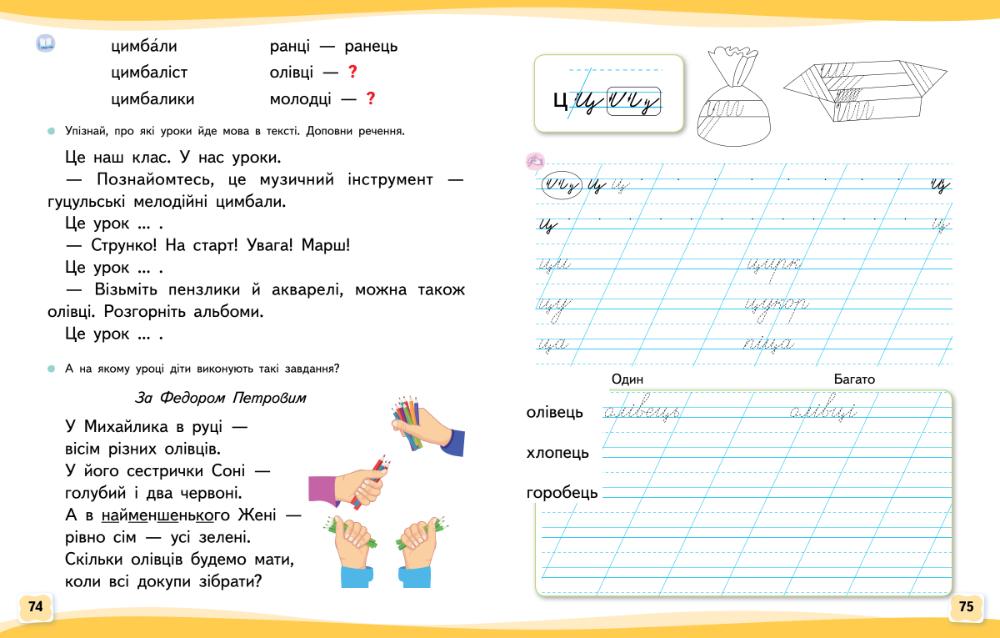 цимба́ли ранці — ранець
цимбаліст олівці — ?
цимбалики молодці — ?
Упізнай, про які уроки йде мова в тексті. Доповни речення.
Це наш клас. У нас уроки.
— Познайомтесь, це музичний інструмент —
гуцульські мелодійні цимбали.
Це урок ... .
— Струнко! На старт! Увага! Марш!
Це урок ... .
— Візьміть пензлики й акварелі, можна також
олівці. Розгорніть альбоми.
Це урок ... .
А на якому уроці діти виконують такі завдання?
За Федором Петровим
У Михайлика в руці —
вісім різних олівців.
У його сестрички Соні —
голубий і два червоні.
А в найменшенького Жені —
рівно сім — усі зелені.
Скільки олівців будемо мати,
коли всі докупи зібрати?
74
Ц Ц
Ц Ц Ц
ц ц
ци цирк
цу цукор
ца піца
Один Багато
олівець олівець олівці
хлопець
горобець
75